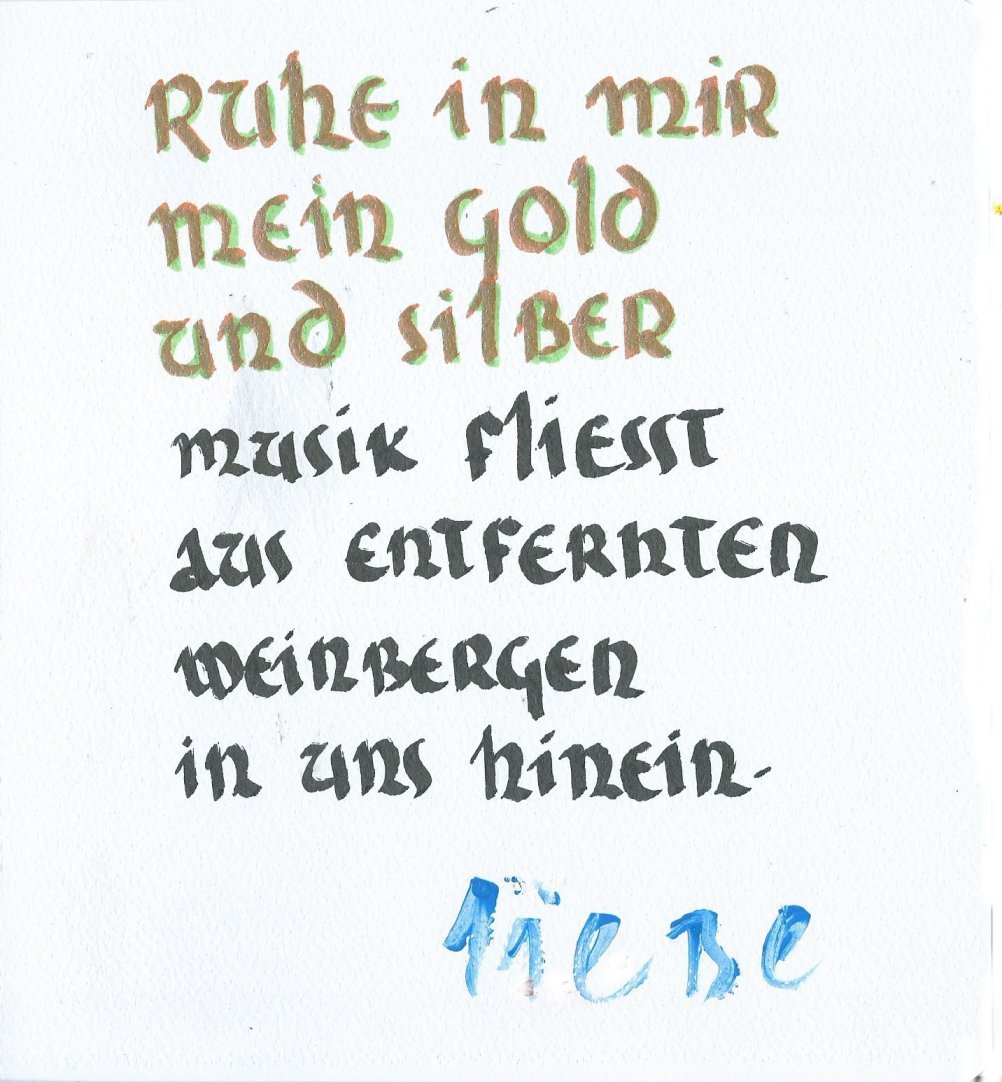 Ruhe in mir
mein gold
und silber
musik fliesst
aus entfernten
weinbergen
in uns hinein-
liebe